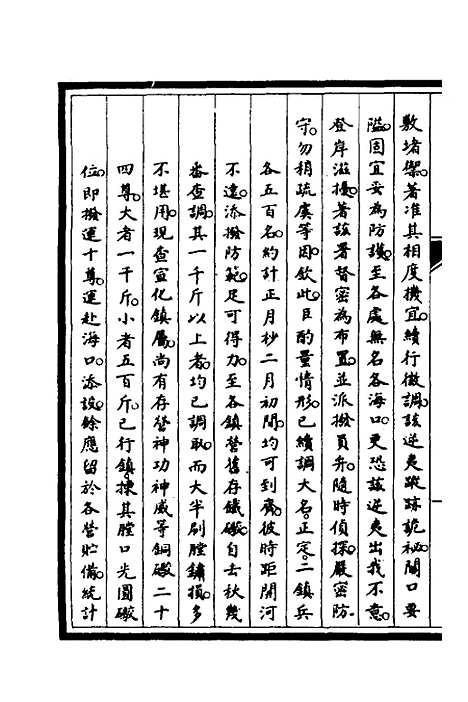 敷堵禦。著准其相度機宜。續行徵調。該逆夷蹤跡詭祕。關口要
隘固宜妥為防護。至各處無名各海口。更恐該逆夷出我不意。
登岸滋擾。著該署督密為布置。並派撥員弁。隨時偵探。嚴密防
守。勿稍疏虞等因。欽此。臣酌量情形。已續調大名。正定。二鎮兵
各五百名。約計正月杪二月初間。均可到齊。彼時距開河
不遠。添撥防範。足可得力。至各鎮營舊存鐵礮。自去秋幾
番查調。其一千斤以上者。均已調取。而大半刷膛鏽損。多
不堪用。現查宣化鎮屬。尚有存營神功神威等銅礮二十
四尊。大者一千斤。小者五百斤。已行鎮。揀其膛口光圓礮
位。即撥運十尊。運赴海口。添設。餘應留於各營貯備。統計